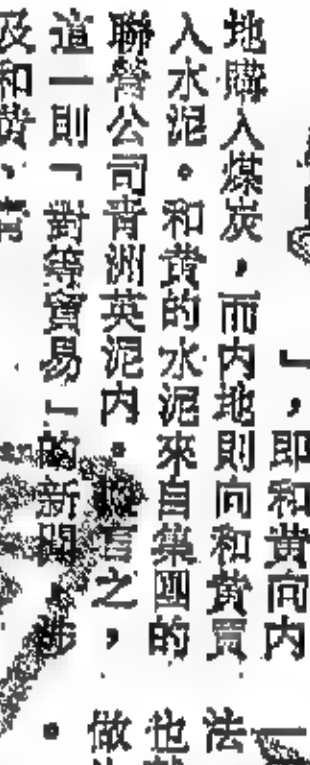 」，即和黃向内
地購入煤炭，而内地則向和黃買
入水泥。和黃的水泥來自集團的
聯營公司青洲英泥内。 之，
這一則「對等貿易」的新聞 涉
及和黃、青
一
法
也
做